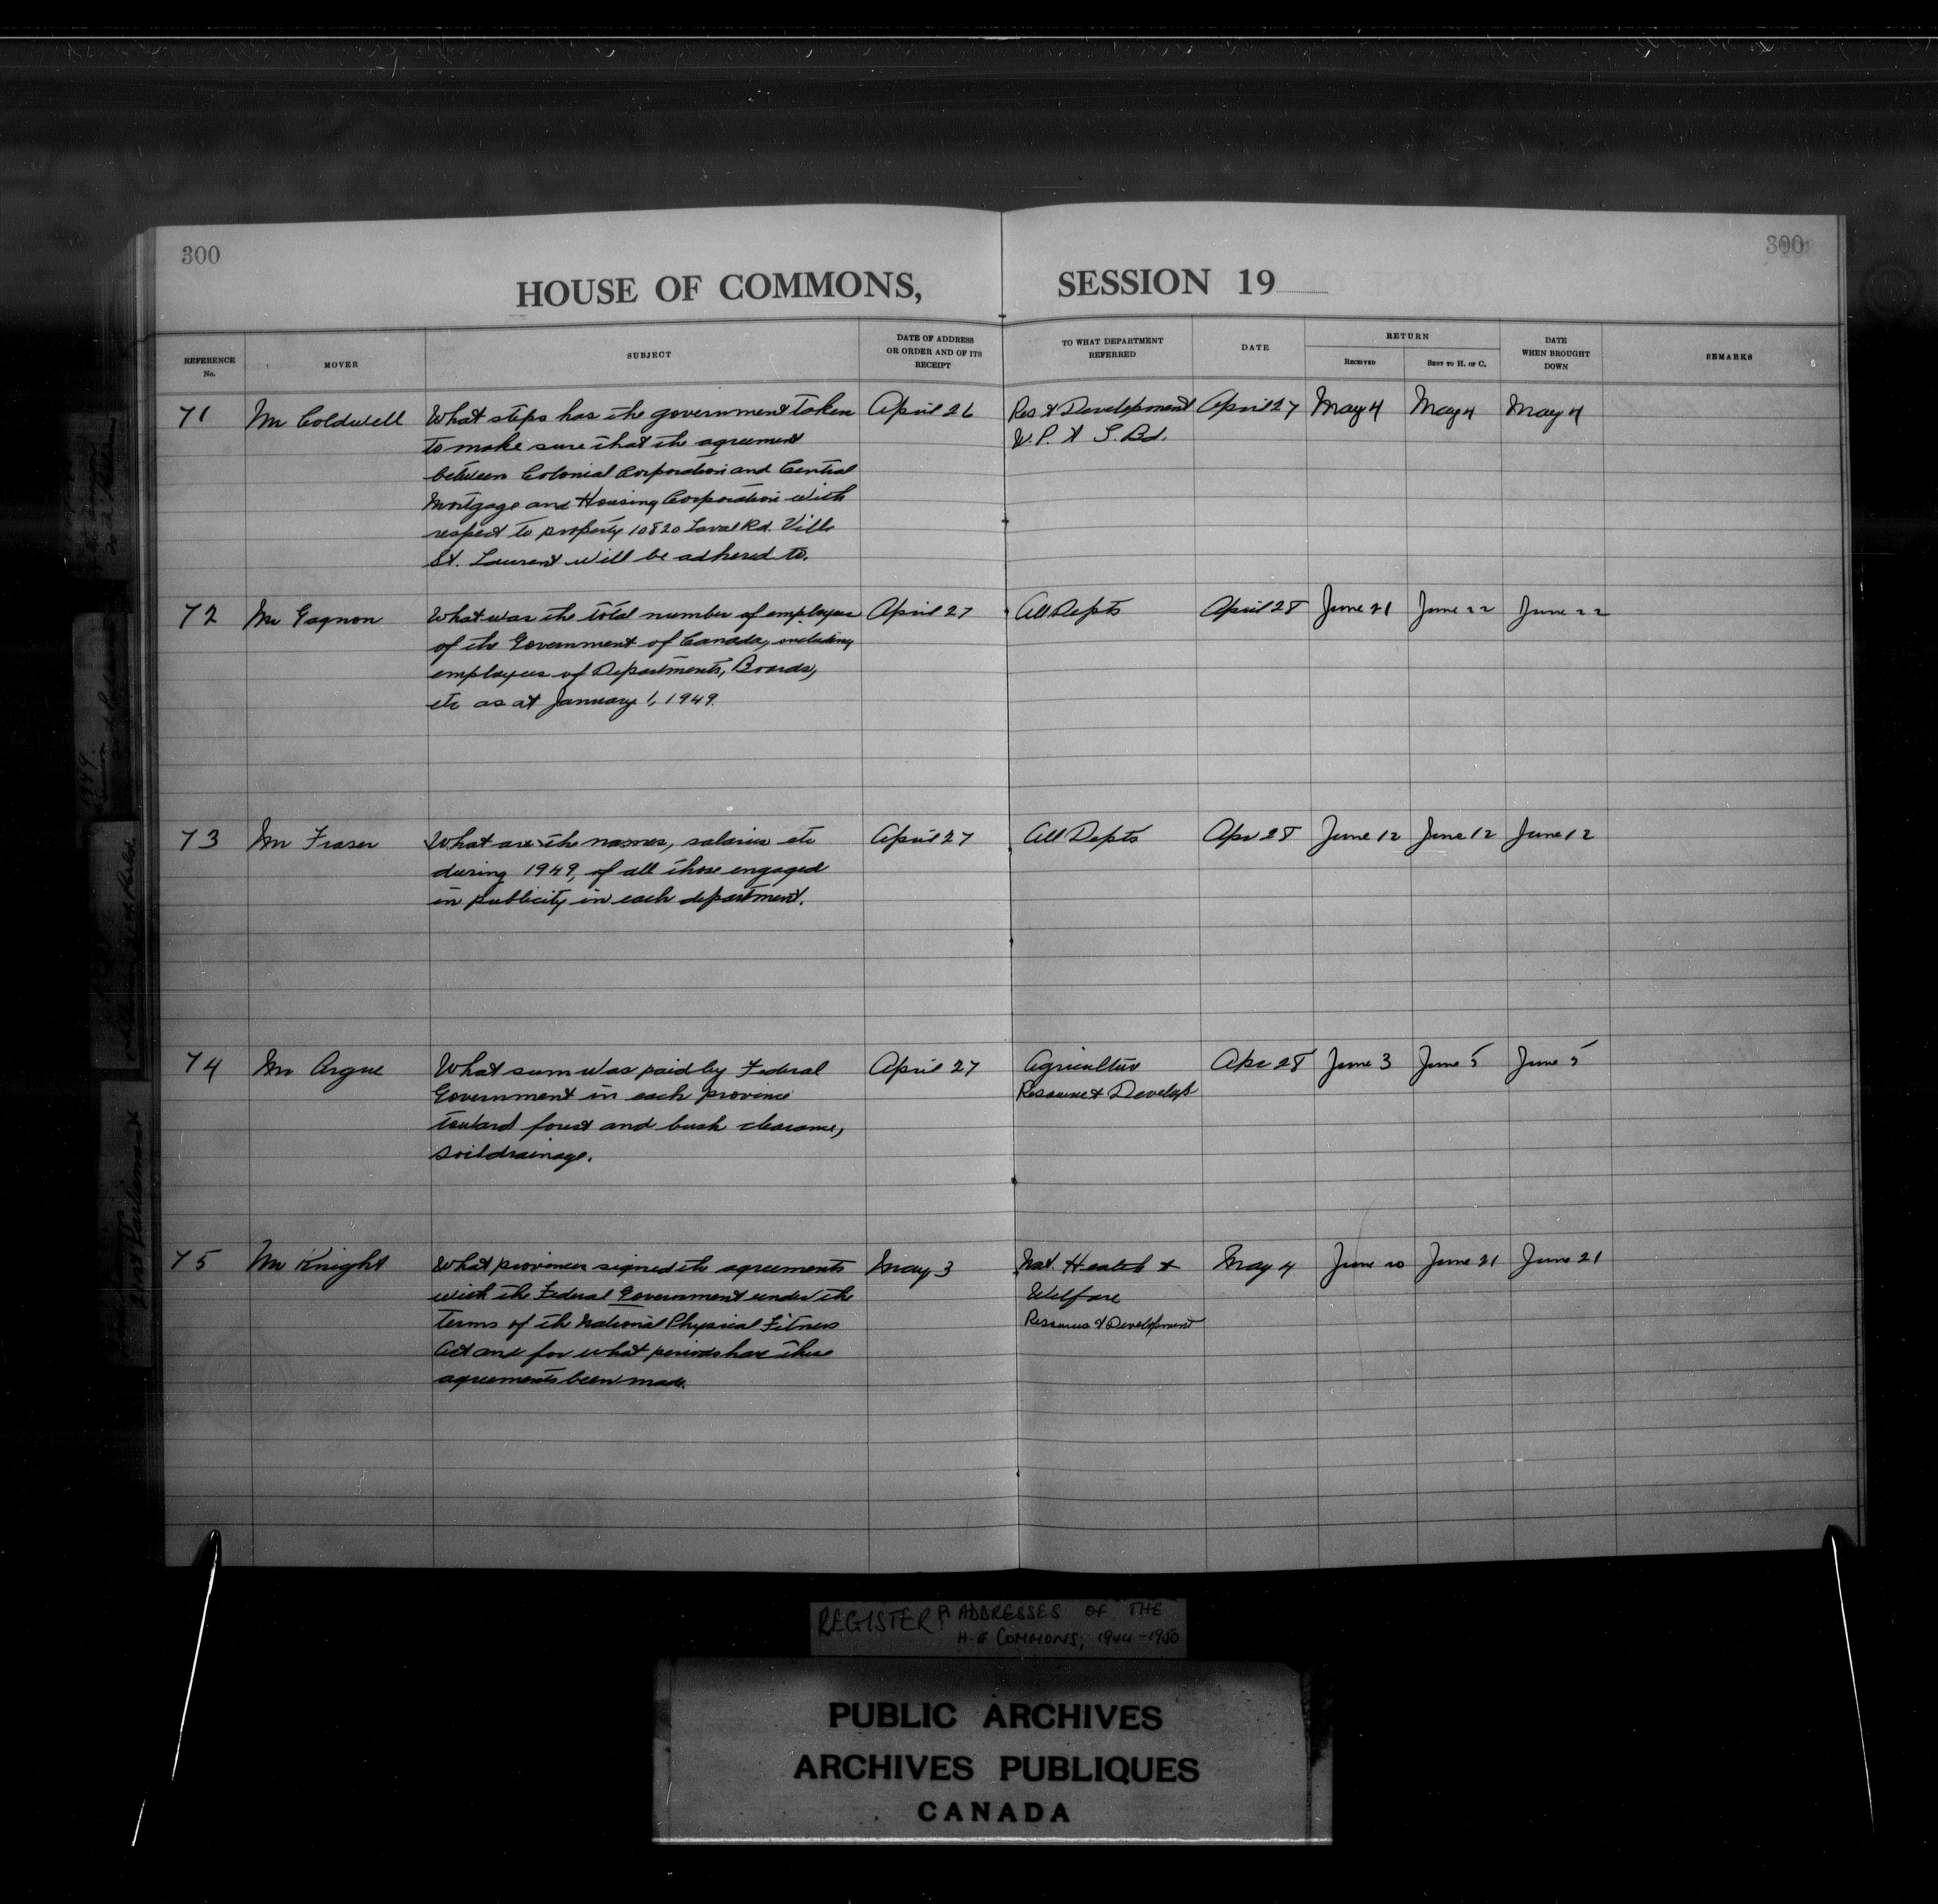 300
300
HOUSE OF COMMONS, SESSION 19
REFERENCE No.
MOVER
SUBJECT
DATE OF ADDRESS OR ORDER AND OF ITS RECEIPT
TO WHAT DEPARTMENT REFERRED
DATE
RETURN
RECEIVED
SENT TO H. OF C.
DATE WHEN BROUGHT DOWN
REMARKS
71 Mr Coldwell What steps has the government taken April 26 Res & Development April 27 May 4 May 4 May 4
to make sure that the agreement W.P. & T. Bd.
between Colonial Corporation and Central
Mortgage and Housing Corporation with
respect to property 10820 Laval Rd. Ville
St. Laurent will be adhered to.
72 Mr Gagnon What was the total number of employees April 27 All Depts April 28 June 21 June 22 June 22
of the Government of Canada, including
employees of Departments, Boards,
etc as at January 1, 1949.
73 Mr Fraser What are the names, salaries etc April 27 All Depts Apr 28 June 12 June 12 June 12
during 1949, of all those engaged
in publicity in each department.
74 Mr Argue What sum was paid by Federal April 27 Agriculture Apr 28 June 3 June 5 June 5
Government in each province Resource & Develop
toward forest and bush clearance,
soil drainage.
75 Mr Knight What provinces signed the agreements May 3 Nat. Health & May 4 June 20 June 21 June 21
with the Federal Government under the Welfare
terms of the National Physical Fitness Resources & Development
Act and for what periods have these
agreements been made.
REGISTER ADDRESSES OF THE
H. OF COMMONS, 1944-1950
PUBLIC ARCHIVES
ARCHIVES PUBLIQUES
CANADA